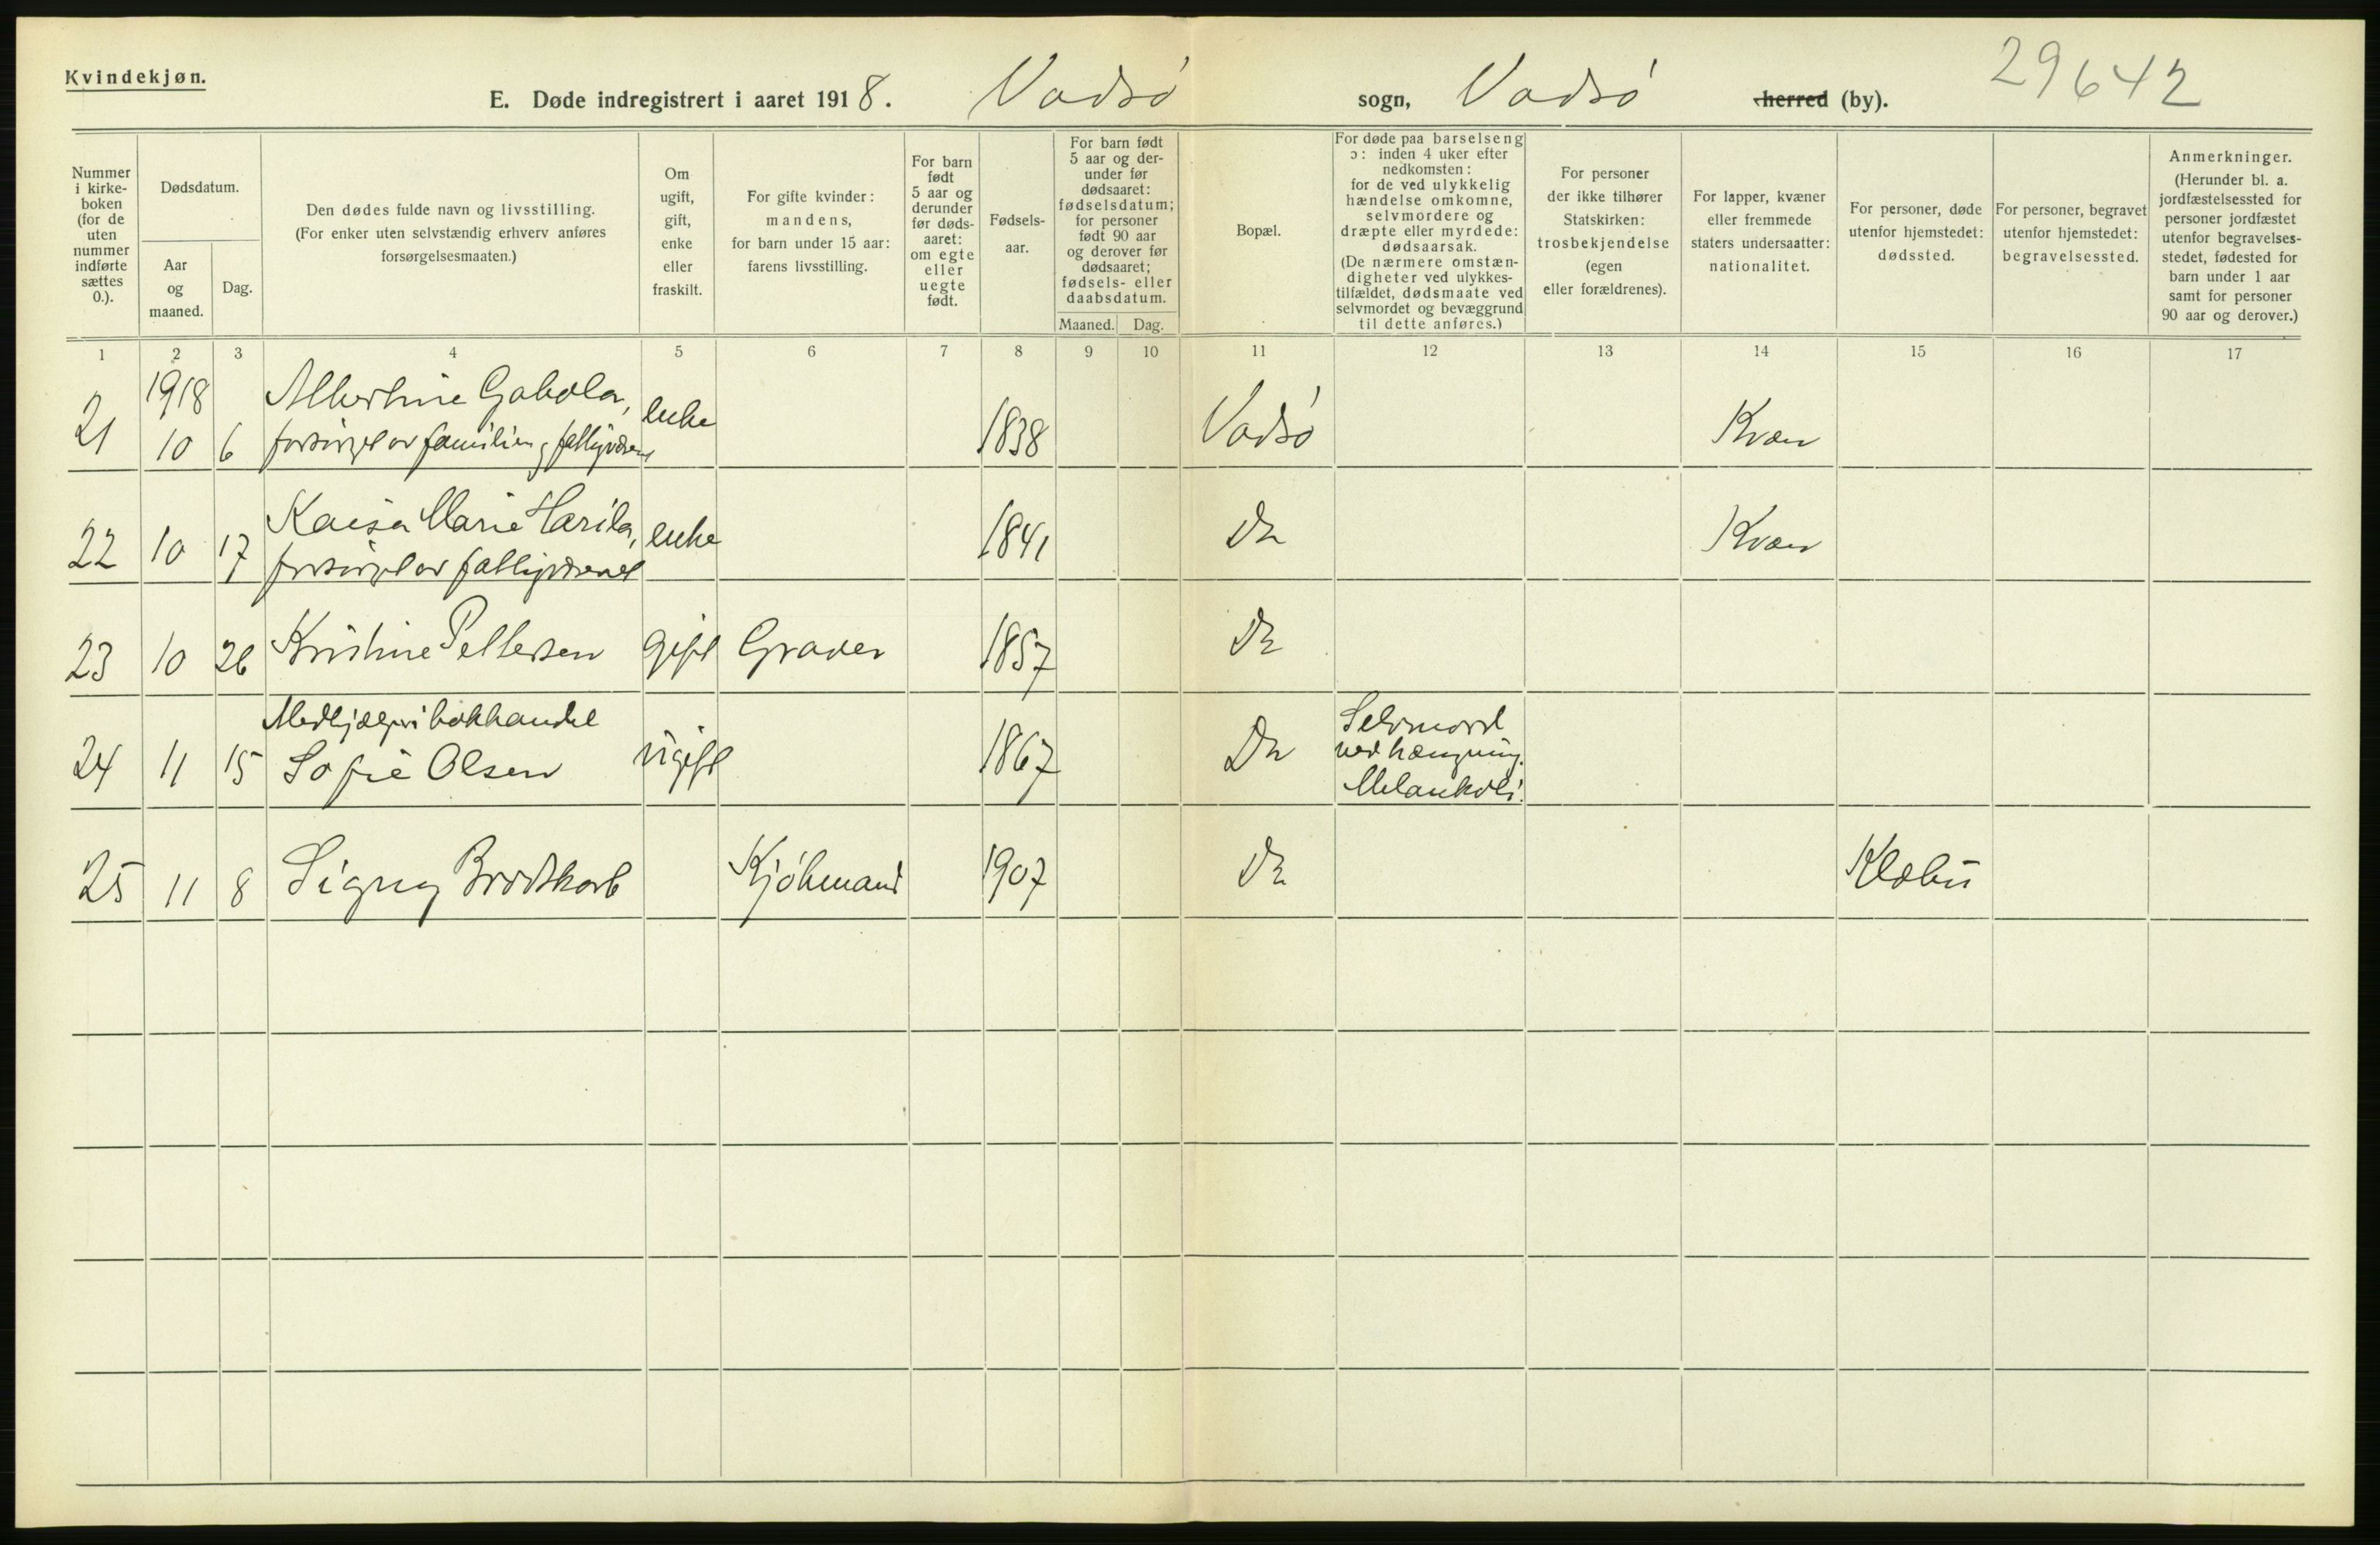 Kvindekjøn.
29642
E. Døde indregistrert i aaret 1918. Vadsø sogn, Vadsø herred (by).
Nummer i kirke-boken (for de uten nummer indførte sættes 0.).
Dødsdatum.
Aar og maaned.
Dag.
Den dødes fulde navn og livsstilling.
(For enker uten selvstændig erhverv anføres
forsørgelsesmaaten.)
Om ugift, gift, enke eller fraskilt.
For gifte kvinder:
mandens,
for barn under 15 aar:
farens livsstilling.
For barn født 5 aar og derunder før døds-aaret: om egte eller uegte født.
Fødsels-aar.
For barn født 5 aar og der-under før dødsaaret: fødselsdatum; for personer født 90 aar og derover før dødsaaret; fødsels- eller daabsdatum.
Maaned. Dag.
Bopæl.
For døde paa barselseng
ɔ: inden 4 uker efter
nedkomsten:
for de ved ulykkelig
hændelse omkomne,
selvmordere og
dræpte eller myrdede:
dødsaarsak.
(De nærmere omstæn-
digheter ved ulykkes-
tilfældet, dødsmaate ved
selvmordet og bevæggrund
til dette anføres.)
For personer
der ikke tilhører
Statskirken:
trosbekjendelse
(egen
eller forældrenes).
For lapper, kvæner
eller fremmede
staters undersaatter:
nationalitet.
For personer, døde
utenfor hjemstedet:
dødssted.
For personer, begravet
utenfor hjemstedet:
begravelsessted.
Anmerkninger.
(Herunder bl. a.
jordfæstelsessted for
personer jordfæstet
utenfor begravelses-
stedet, fødested for
barn under 1 aar
samt for personer
90 aar og derover.)
1 2 3 4 5 6 7 8 9 10 11 12 13 14 15 16 17
1918 Albertine Gabola,
21 10 6 forsørget av familien og fattigvæsenet enke 1838 Vadsø Kvæn
Kaisa Marie Harila,
22 10 17 forsørget av fattigvæsenet enke 1841 Do Kvæn
23 10 26 Kristine Pettersen gift Graver 1857 Do
Medhjælper i bokhandel Selvmord
24 11 15 Sofie Olsen ugift 1867 Do ved hængning.
Melankoli.
25 11 8 Signy Brodtkorb Kjøbmand 1907 Do Klæbu